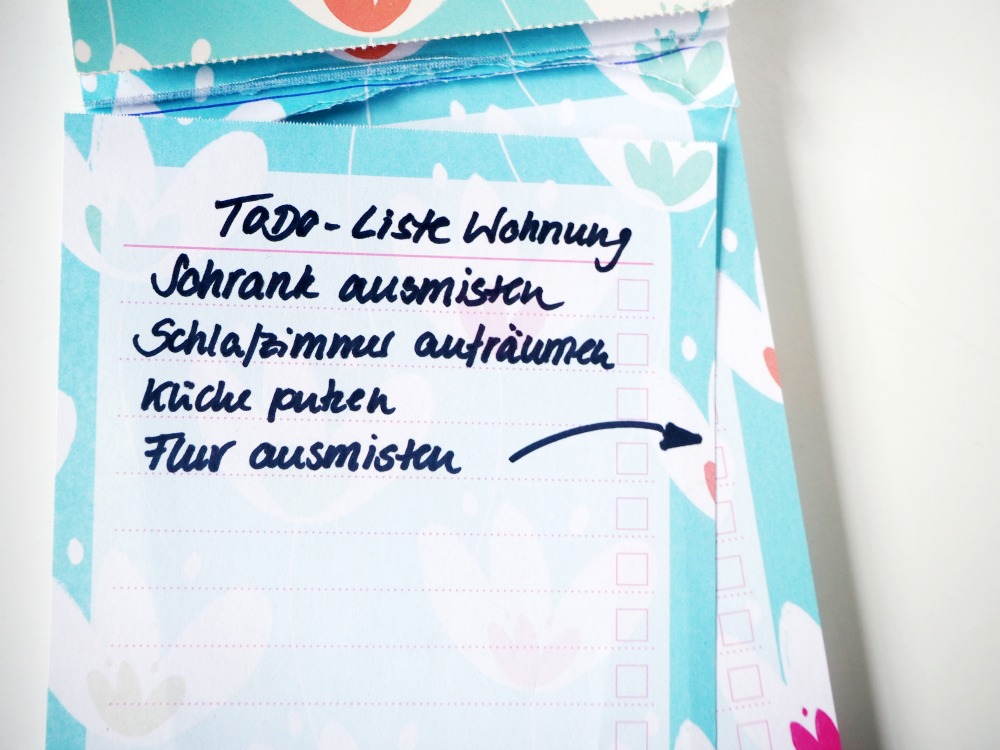 ToDo-Liste Wohnung
Schrank ausmisten
Schlafzimmer aufräumen
Küche putzen
Flur ausmisten